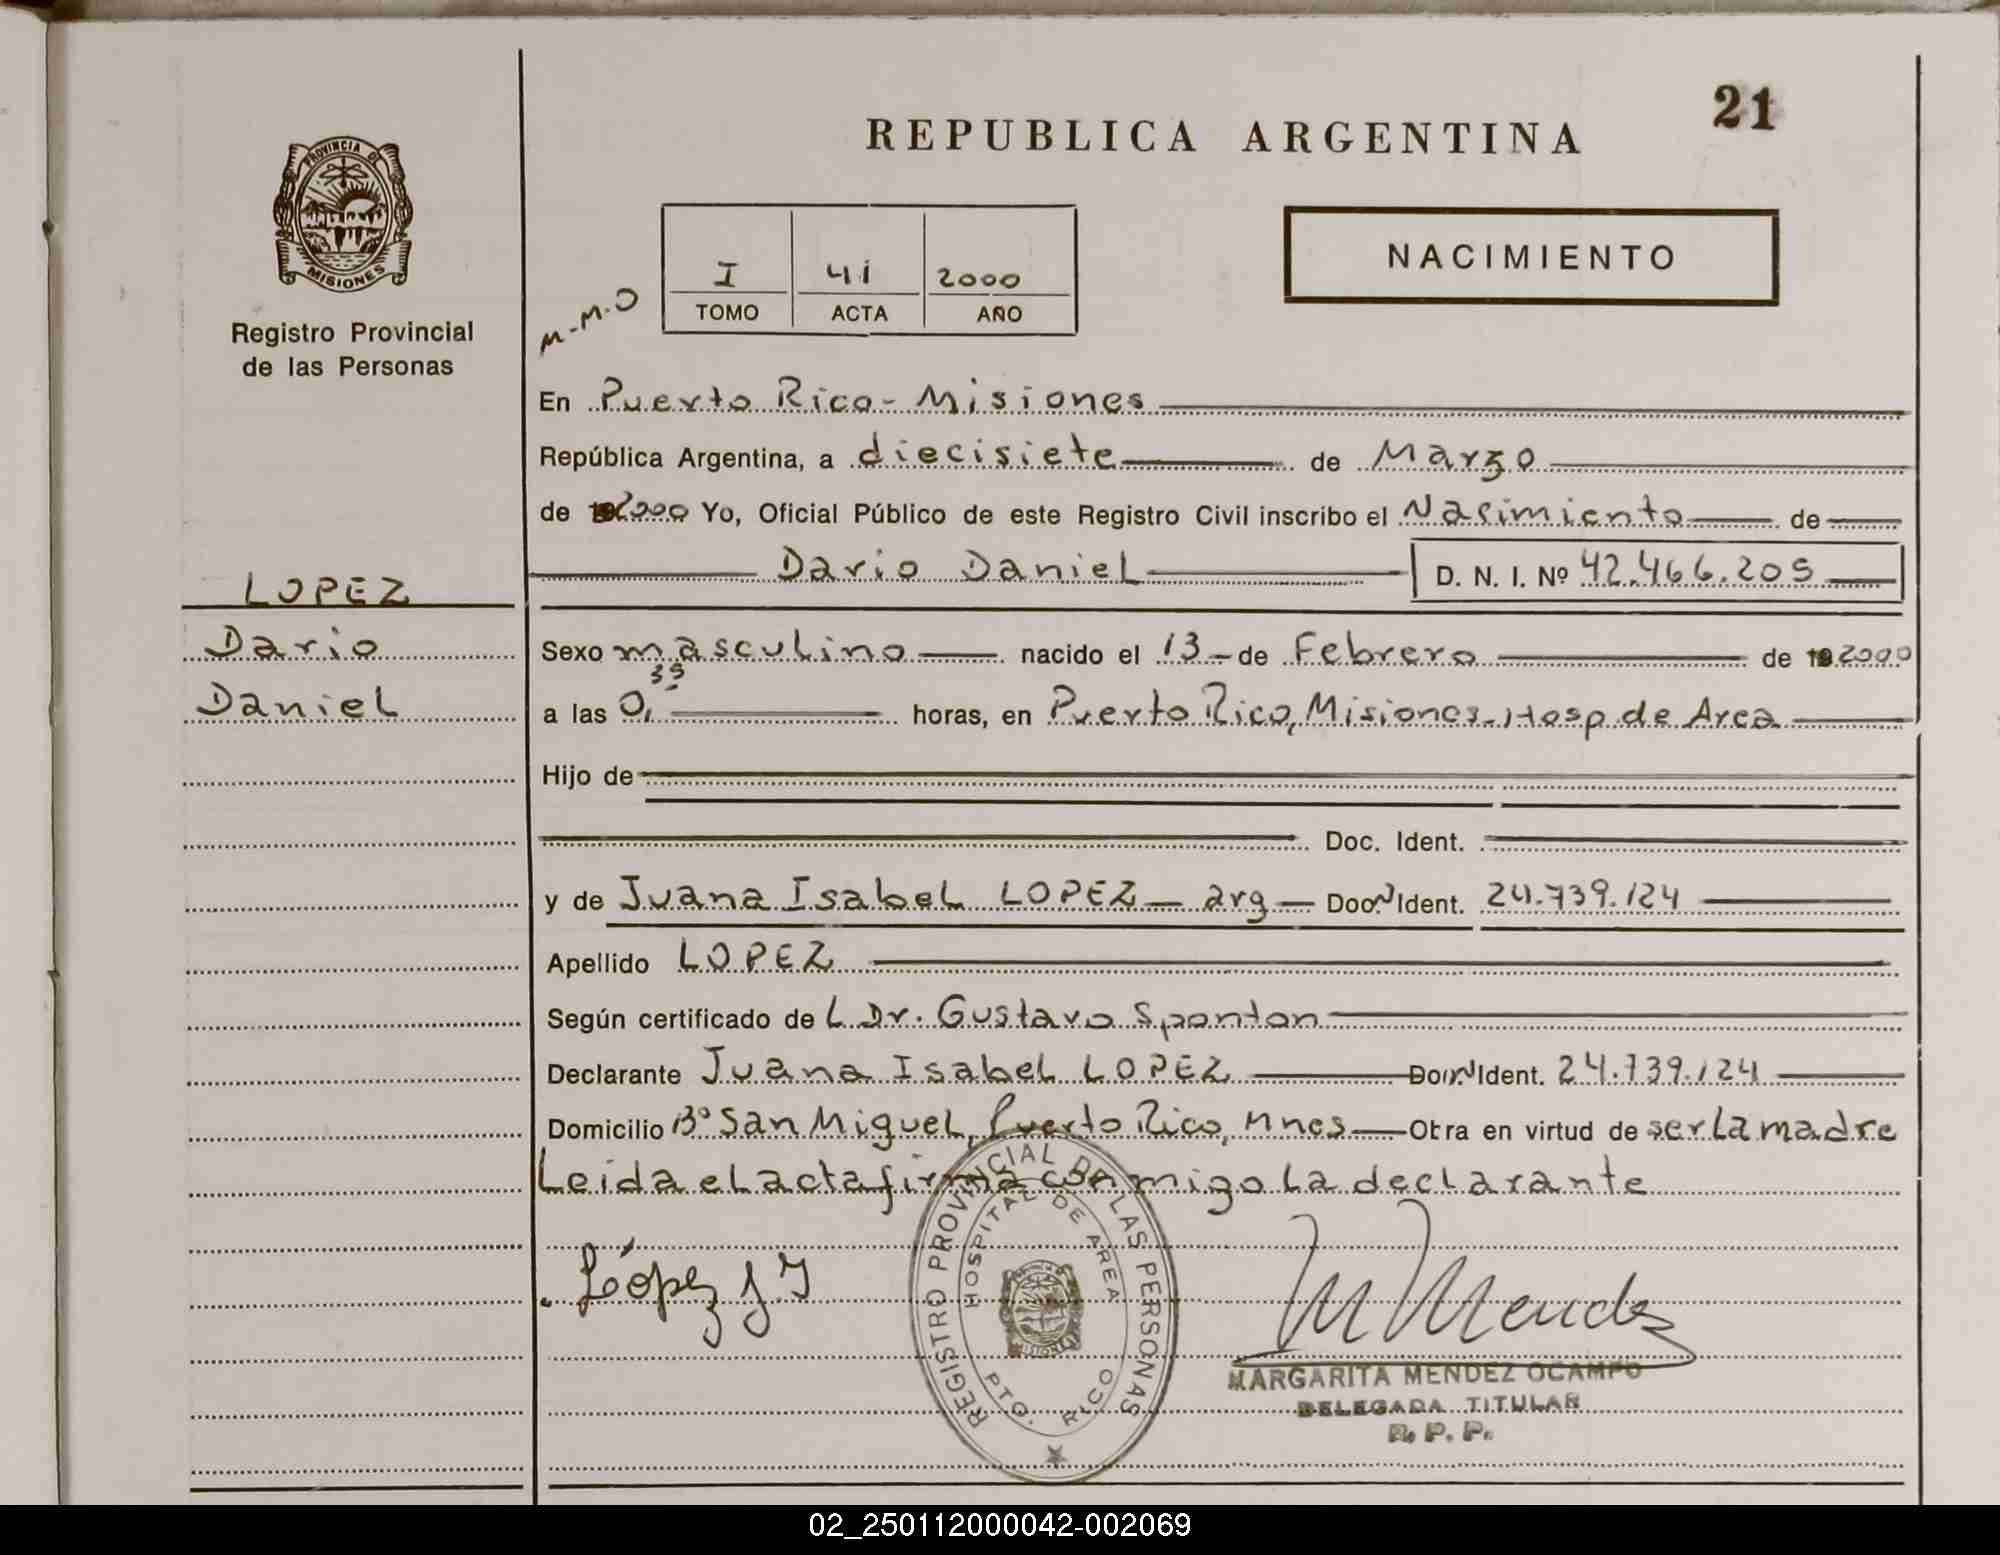 REPUBLICA ARGENTINA
21
PROVINCIA DE MISIONES
Registro Provincial
de las Personas
M-M.O
I 41 2000
TOMO ACTA AÑO
NACIMIENTO
En Puerto Rico - Misiones
República Argentina, a diecisiete de Marzo
de 2000 Yo, Oficial Público de este Registro Civil inscribo el Nacimiento de
Dario Daniel D. N. I. Nº 42.466.205
LOPEZ
Dario
Daniel
Sexo masculino nacido el 13 - de Febrero de 19 2000
a las 0,35 horas, en Puerto Rico, Misiones - Hosp de Area
Hijo de
Doc. Ident.
y de Juana Isabel LOPEZ - arg - Ident. 24.739.124
Apellido LOPEZ
Según certificado del Dr. Gustavo Sponton
Declarante Juana Isabel LOPEZ Ident. 24.739.124
Domicilio Bº San Miguel, Puerto Rico, Mnes - Obra en virtud de ser la madre
Leida el acta firma conmigo la declarante
López J. I
M Mendez
REGISTRO PROVINCIAL DE LAS PERSONAS
HOSPITAL DE AREA
PTO. RICO
MARGARITA MENDEZ OCAMPO
DELEGADA TITULAR
R. P. P.
02_250112000042-002069